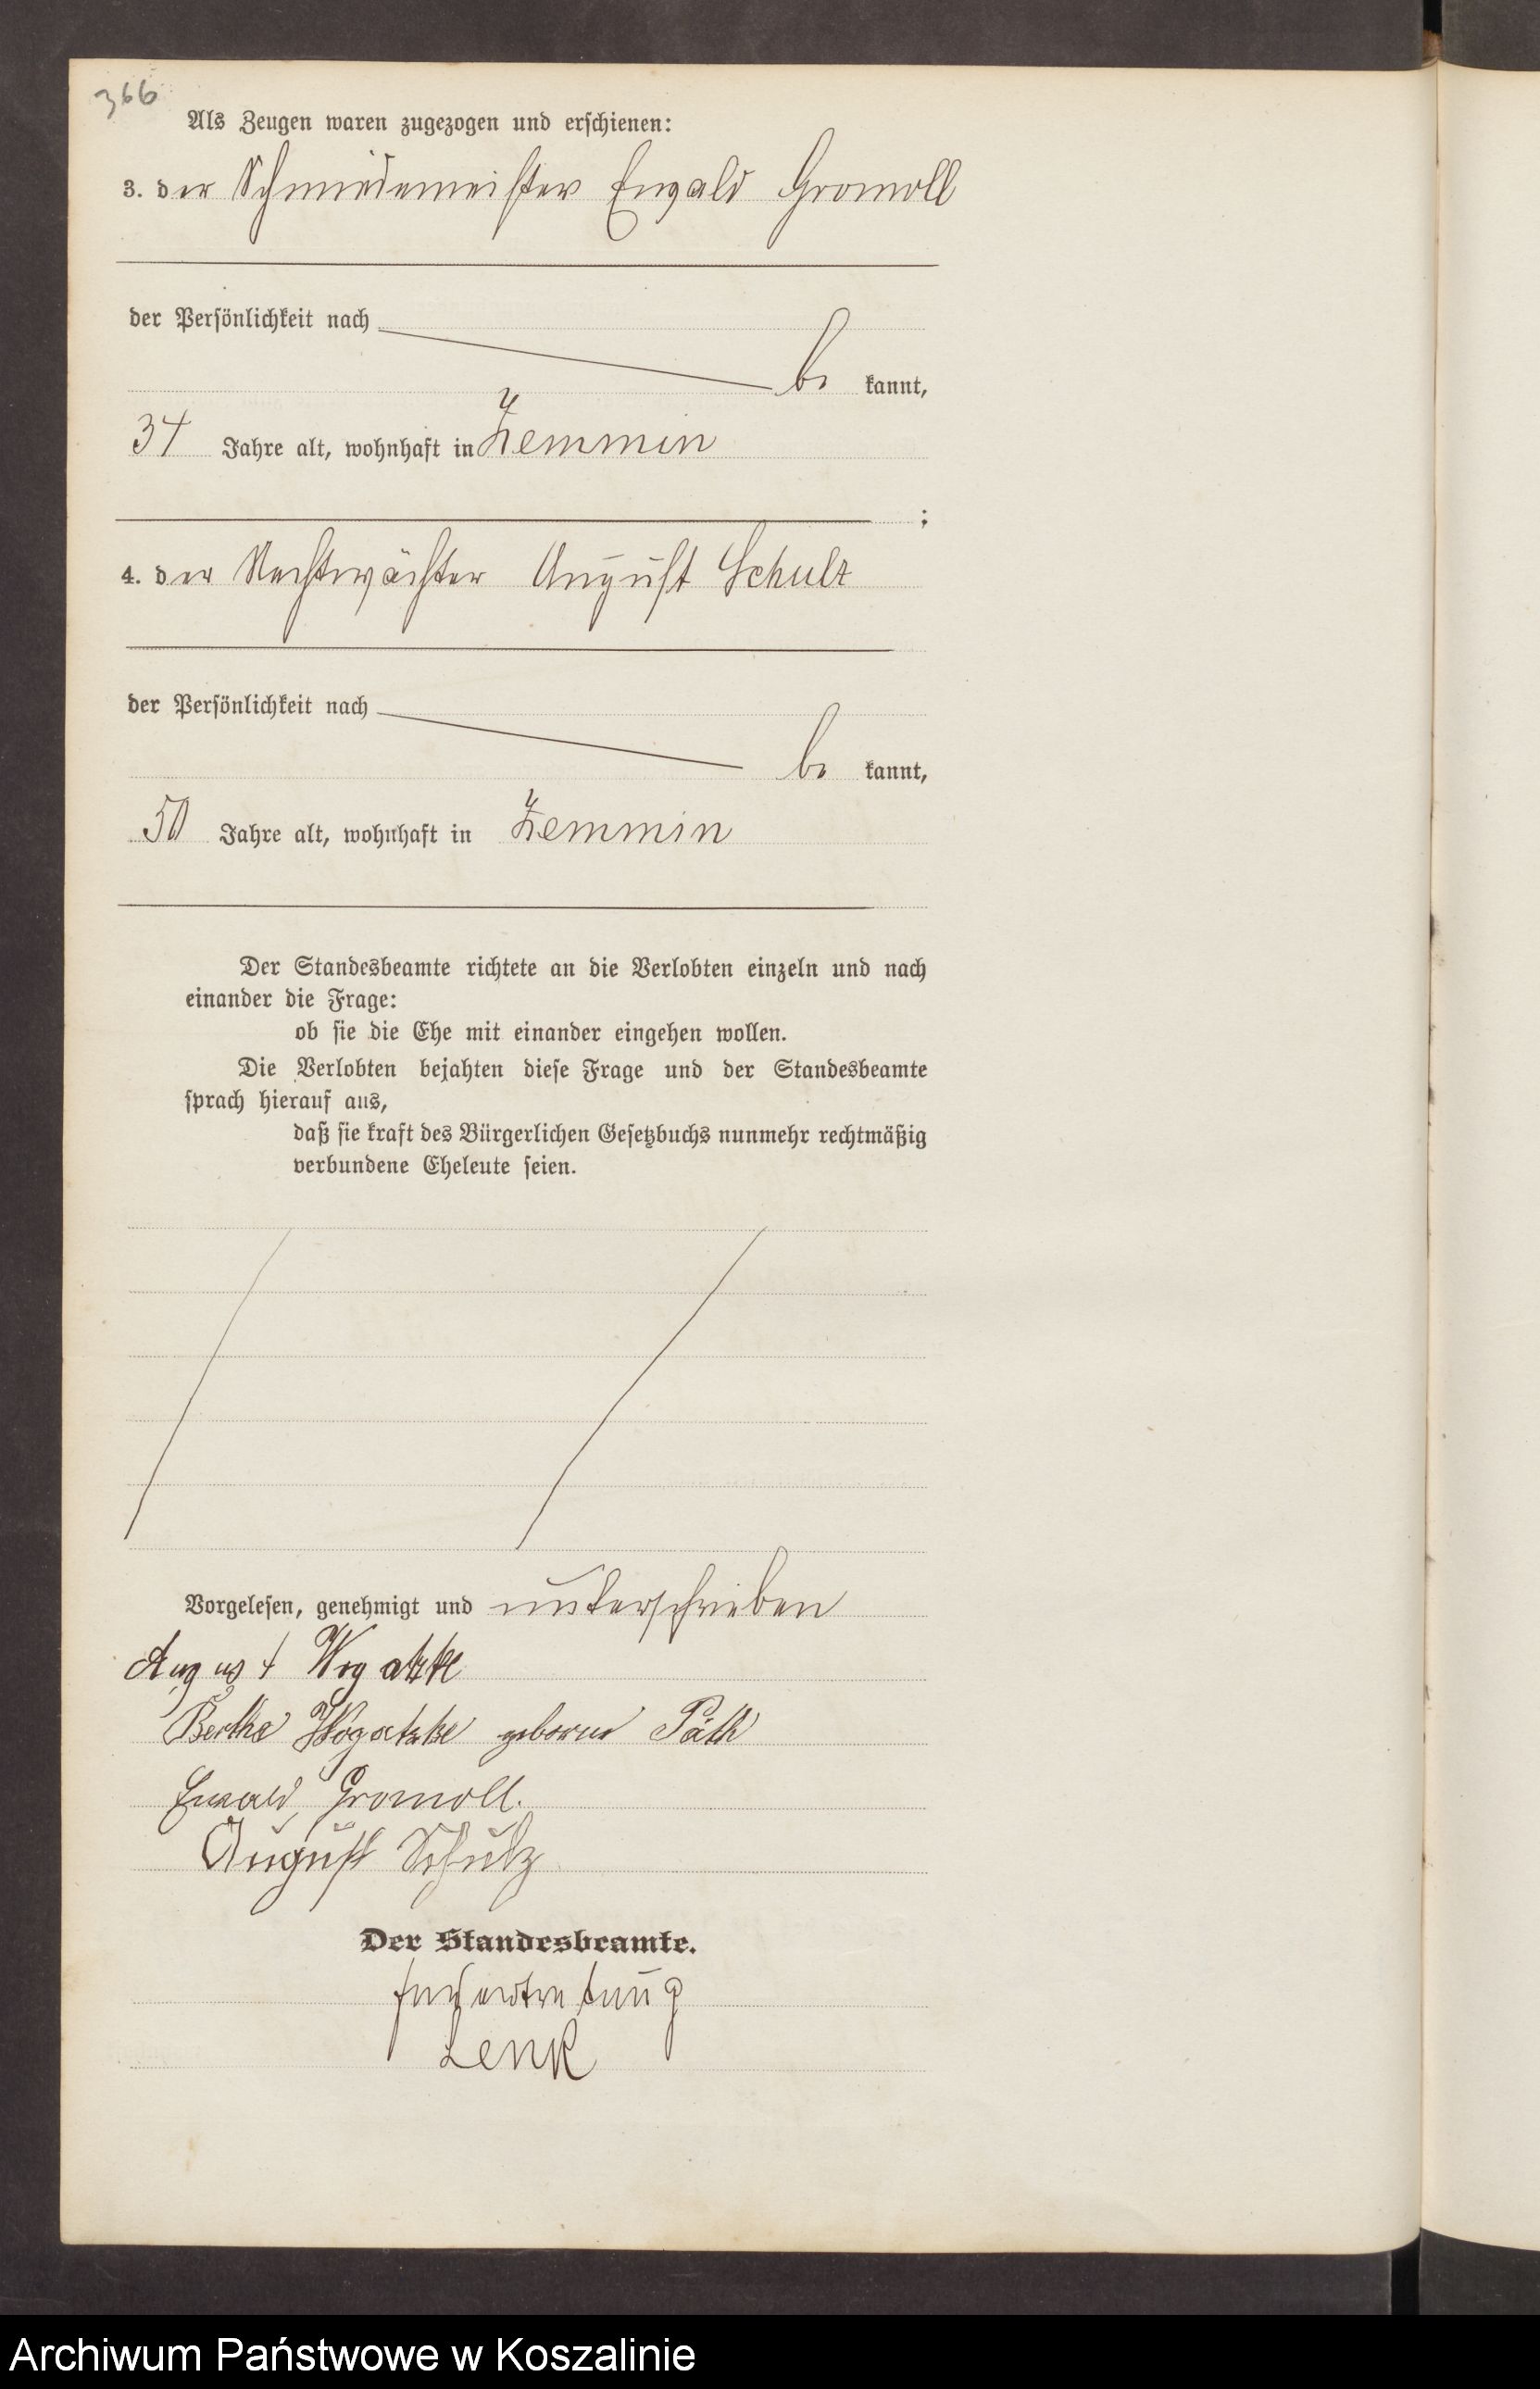 366
Als Zeugen waren zugezogen und erschienen:
3. der Schmiedemeister Ewald Gromoll
der Persönlichkeit nach
be kannt,
34 Jahre alt, wohnhaft in Zemmin
;
4. der Nachtwächter August Schulz
der Persönlichkeit nach
be kannt,
50 Jahre alt, wohnhaft in Zemmin
Der Standesbeamte richtete an die Verlobten einzeln und nach
einander die Frage:
ob sie die Ehe mit einander eingehen wollen.
Die Verlobten bejahten diese Frage und der Standesbeamte
sprach hierauf aus,
daß sie kraft des Bürgerlichen Gesetzbuchs nunmehr rechtmäßig
verbundene Eheleute seien.
Vorgelesen, genehmigt und unterschrieben
August Wogatzke
Bertha Wogatzke geborene Päth
Ewald Gromoll.
August Schulz
Der Standesbeamte.
In Vertretung
Lenk
Archiwum Państwowe w Koszalinie